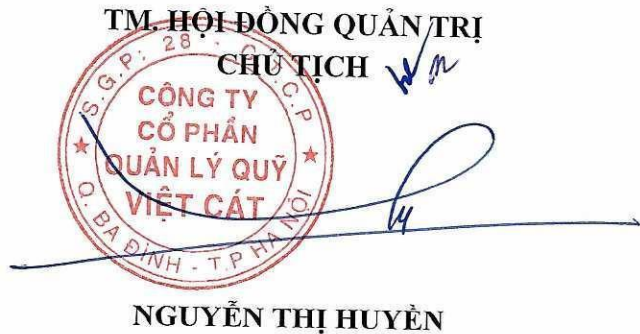 TM. HỘI ĐỒNG QUẢN TRỊ
CHỦ TỊCH
S.G.P: 28 - C.T.C.P
CÔNG TY
CỔ PHẦN
QUẢN LÝ QUỸ
VIỆT CÁT
Q. BA ĐÌNH - T.P HÀ NỘI
NGUYỄN THỊ HUYỀN